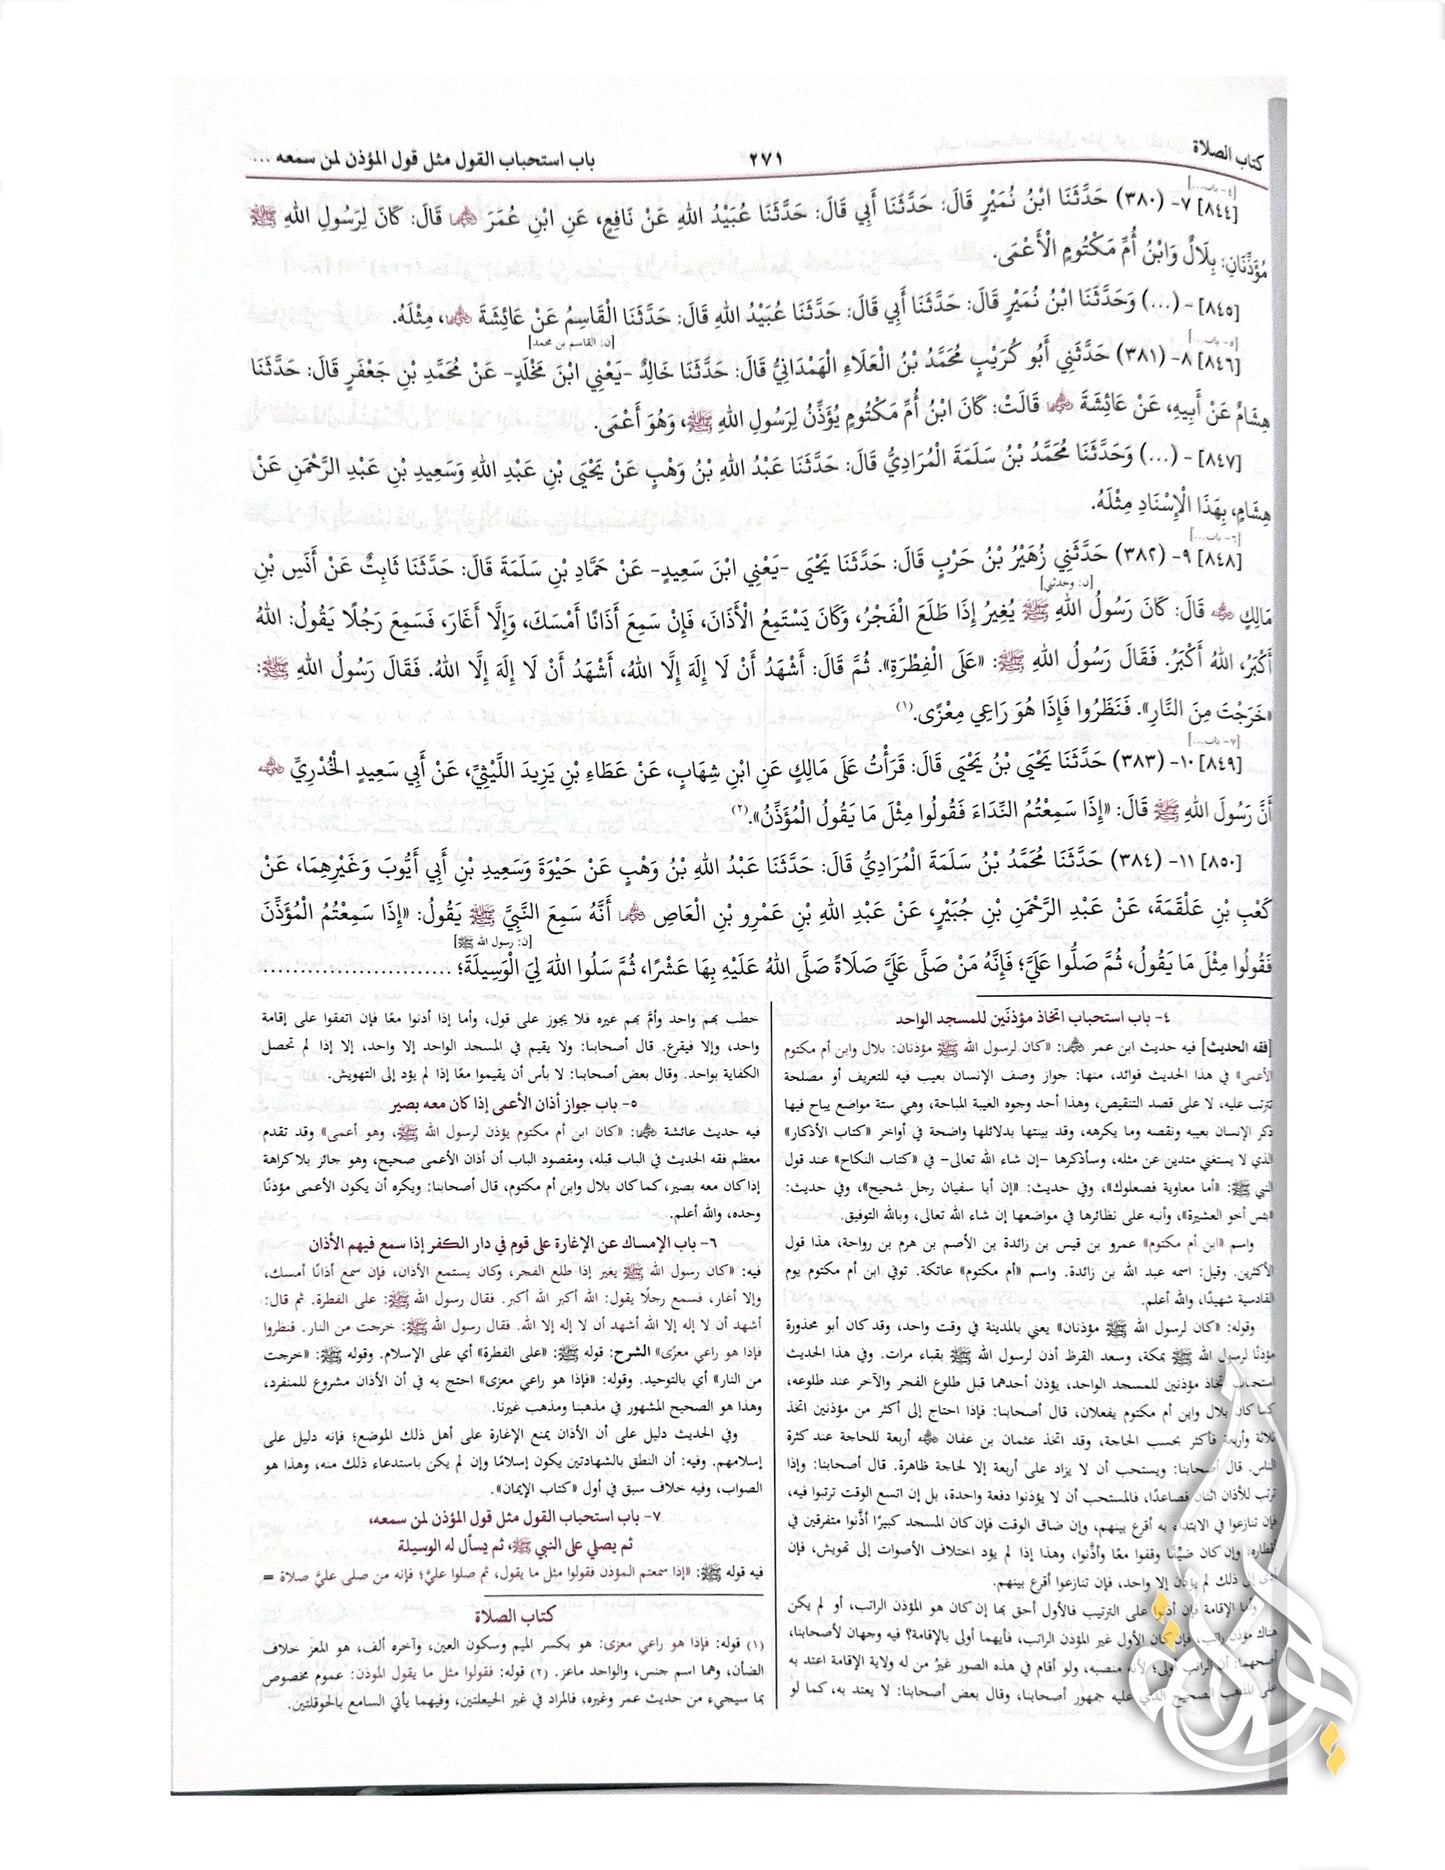 كتاب الصلاة ٢٧١ باب استحباب القول مثل قول المؤذن لمن سمعه ...
[٤- باب...]
[٨٤٤] ٧- (٣٨٠) حَدَّثَنَا ابْنُ نُمَيْرٍ قَالَ: حَدَّثَنَا أَبِي قَالَ: حَدَّثَنَا عُبَيْدُ اللهِ عَنْ نَافِعٍ، عَنِ ابْنِ عُمَرَ ﵄ قَالَ: كَانَ لِرَسُولِ اللهِ ﷺ
مُؤَذِّنَانِ: بِلَالٌ وَابْنُ أُمِّ مَكْتُومٍ الْأَعْمَى.
[٨٤٥] - (...) وَحَدَّثَنَا ابْنُ نُمَيْرٍ قَالَ: حَدَّثَنَا أَبِي قَالَ: حَدَّثَنَا عُبَيْدُ اللهِ قَالَ: حَدَّثَنَا الْقَاسِمُ عَنْ عَائِشَةَ ﵂، مِثْلَهُ.
[ن: القاسم بن محمد]
[٥- باب...]
[٨٤٦] ٨- (٣٨١) حَدَّثَنِي أَبُو كُرَيْبٍ مُحَمَّدُ بْنُ الْعَلَاءِ الْهَمْدَانِيُّ قَالَ: حَدَّثَنَا خَالِدٌ -يَعْنِي ابْنَ مَخْلَدٍ- عَنْ مُحَمَّدِ بْنِ جَعْفَرٍ قَالَ: حَدَّثَنَا
هِشَامٌ عَنْ أَبِيهِ، عَنْ عَائِشَةَ ﵂ قَالَتْ: كَانَ ابْنُ أُمِّ مَكْتُومٍ يُؤَذِّنُ لِرَسُولِ اللهِ ﷺ، وَهُوَ أَعْمَى.
[٨٤٧] - (...) وَحَدَّثَنَا مُحَمَّدُ بْنُ سَلَمَةَ الْمُرَادِيُّ قَالَ: حَدَّثَنَا عَبْدُ اللهِ بْنُ وَهْبٍ عَنْ يَحْيَى بْنِ عَبْدِ اللهِ وَسَعِيدِ بْنِ عَبْدِ الرَّحْمَنِ عَنْ
هِشَامٍ، بِهَذَا الْإِسْنَادِ مِثْلَهُ.
[٦- باب...]
[٨٤٨] ٩- (٣٨٢) حَدَّثَنِي زُهَيْرُ بْنُ حَرْبٍ قَالَ: حَدَّثَنَا يَحْيَى -يَعْنِي ابْنَ سَعِيدٍ- عَنْ حَمَّادِ بْنِ سَلَمَةَ قَالَ: حَدَّثَنَا ثَابِتٌ عَنْ أَنَسِ بْنِ
[ن: وحدثني]
مَالِكٍ ﵁ قَالَ: كَانَ رَسُولُ اللهِ ﷺ يُغِيرُ إِذَا طَلَعَ الْفَجْرُ، وَكَانَ يَسْتَمِعُ الْأَذَانَ، فَإِنْ سَمِعَ أَذَانًا أَمْسَكَ، وَإِلَّا أَغَارَ، فَسَمِعَ رَجُلًا يَقُولُ: اللهُ
أَكْبَرُ، اللهُ أَكْبَرُ. فَقَالَ رَسُولُ اللهِ ﷺ: «عَلَى الْفِطْرَةِ». ثُمَّ قَالَ: أَشْهَدُ أَنْ لَا إِلَهَ إِلَّا اللهُ، أَشْهَدُ أَنْ لَا إِلَهَ إِلَّا اللهُ. فَقَالَ رَسُولُ اللهِ ﷺ:
«خَرَجْتَ مِنَ النَّارِ». فَنَظَرُوا فَإِذَا هُوَ رَاعِي مِعْزًى.(١)
[٧- باب...]
[٨٤٩] ١٠- (٣٨٣) حَدَّثَنَا يَحْيَى بْنُ يَحْيَى قَالَ: قَرَأْتُ عَلَى مَالِكٍ عَنِ ابْنِ شِهَابٍ، عَنْ عَطَاءِ بْنِ يَزِيدَ اللَّيْثِيِّ، عَنْ أَبِي سَعِيدٍ الْخُدْرِيِّ ﵁
أَنَّ رَسُولَ اللهِ ﷺ قَالَ: «إِذَا سَمِعْتُمُ النِّدَاءَ فَقُولُوا مِثْلَ مَا يَقُولُ الْمُؤَذِّنُ».(٢)
[٨٥٠] ١١- (٣٨٤) حَدَّثَنَا مُحَمَّدُ بْنُ سَلَمَةَ الْمُرَادِيُّ قَالَ: حَدَّثَنَا عَبْدُ اللهِ بْنُ وَهْبٍ عَنْ حَيْوَةَ وَسَعِيدِ بْنِ أَبِي أَيُّوبَ وَغَيْرِهِمَا، عَنْ
كَعْبِ بْنِ عَلْقَمَةَ، عَنْ عَبْدِ الرَّحْمَنِ بْنِ جُبَيْرٍ، عَنْ عَبْدِ اللهِ بْنِ عَمْرِو بْنِ الْعَاصِ ﵄ أَنَّهُ سَمِعَ النَّبِيَّ ﷺ يَقُولُ: «إِذَا سَمِعْتُمُ الْمُؤَذِّنَ
[ن: رسول الله ﷺ]
فَقُولُوا مِثْلَ مَا يَقُولُ، ثُمَّ صَلُّوا عَلَيَّ؛ فَإِنَّهُ مَنْ صَلَّى عَلَيَّ صَلَاةً صَلَّى اللهُ عَلَيْهِ بِهَا عَشْرًا، ثُمَّ سَلُوا اللهَ لِيَ الْوَسِيلَةَ؛ .........................
٤- باب استحباب اتخاذ مؤذنَين للمسجد الواحد
[فقه الحديث] فيه حديث ابن عمر ﵄: «كان لرسول الله ﷺ مؤذنان: بلال وابن أم مكتوم
الأعمى» في هذا الحديث فوائد، منها: جواز وصف الإنسان بعيب فيه للتعريف أو مصلحة
تترتب عليه، لا على قصد التنقيص، وهذا أحد وجوه الغيبة المباحة، وهي ستة مواضع يباح فيها
ذكر الإنسان بعيبه ونقصه وما يكرهه، وقد بينتها بدلائلها واضحة في أواخر «كتاب الأذكار»
الذي لا يستغني متدين عن مثله، وسأذكرها -إن شاء الله تعالى- في «كتاب النكاح» عند قول
النبي ﷺ: «أما معاوية فصعلوك»، وفي حديث: «إن أبا سفيان رجل شحيح»، وفي حديث:
«بئس أخو العشيرة»، وأنبه على نظائرها في مواضعها إن شاء الله تعالى، وبالله التوفيق.
واسم «ابن أم مكتوم» عمرو بن قيس بن زائدة بن الأصم بن هرم بن رواحة، هذا قول
الأكثرين. وقيل: اسمه عبد الله بن زائدة. واسم «أم مكتوم» عاتكة. توفي ابن أم مكتوم يوم
القادسية شهيدًا، والله أعلم.
وقوله: «كان لرسول الله ﷺ مؤذنان» يعني بالمدينة في وقت واحد، وقد كان أبو محذورة
مؤذنًا لرسول الله ﷺ بمكة، وسعد القرظ أذن لرسول الله ﷺ بقباء مرات. وفي هذا الحديث
استحباب اتخاذ مؤذنين للمسجد الواحد، يؤذن أحدهما قبل طلوع الفجر والآخر عند طلوعه،
كما كان بلال وابن أم مكتوم يفعلان، قال أصحابنا: فإذا احتاج إلى أكثر من مؤذنين اتخذ
ثلاثة وأربعة فأكثر بحسب الحاجة، وقد اتخذ عثمان بن عفان ﵁ أربعة للحاجة عند كثرة
الناس. قال أصحابنا: ويستحب أن لا يزاد على أربعة إلا لحاجة ظاهرة. قال أصحابنا: وإذا
ترتب للأذان اثنان فصاعدًا، فالمستحب أن لا يؤذنوا دفعة واحدة، بل إن اتسع الوقت ترتبوا فيه،
فإن تنازعوا في الابتداء به أقرع بينهم، وإن ضاق الوقت فإن كان المسجد كبيرًا أذَّنوا متفرقين في
أقطاره، وإن كان ضيِّقًا وقفوا معًا وأذَّنوا، وهذا إذا لم يؤد اختلاف الأصوات إلى تهويش، فإن
أدى إلى ذلك لم يؤذن إلا واحد، فإن تنازعوا أقرع بينهم.
وأما الإقامة فإن أذنوا على الترتيب فالأول أحق بها إن كان هو المؤذن الراتب، أو لم يكن
هناك مؤذن راتب، فإن كان الأول غير المؤذن الراتب، فأيهما أولى بالإقامة؟ فيه وجهان لأصحابنا،
أصحهما: أن الراتب أولى؛ لأنه منصبه، ولو أقام في هذه الصور غيرُ من له ولاية الإقامة اعتد به
على المذهب الصحيح الذي عليه جمهور أصحابنا، وقال بعض أصحابنا: لا يعتد به، كما لو
خطب بهم واحد وأمَّ بهم غيره فلا يجوز على قول، وأما إذا أذنوا معًا فإن اتفقوا على إقامة
واحد، وإلا فيقرع. قال أصحابنا: ولا يقيم في المسجد الواحد إلا واحد، إلا إذا لم تحصل
الكفاية بواحد. وقال بعض أصحابنا: لا بأس أن يقيموا معًا إذا لم يؤد إلى التهويش.
٥- باب جواز أذان الأعمى إذا كان معه بصير
فيه حديث عائشة ﵂: «كان ابن أم مكتوم يؤذن لرسول الله ﷺ، وهو أعمى» وقد تقدم
معظم فقه الحديث في الباب قبله، ومقصود الباب أن أذان الأعمى صحيح، وهو جائز بلا كراهة
إذا كان معه بصير، كما كان بلال وابن أم مكتوم، قال أصحابنا: ويكره أن يكون الأعمى مؤذنًا
وحده، والله أعلم.
٦- باب الإمساك عن الإغارة على قوم في دار الكفر إذا سمع فيهم الأذان
فيه: «كان رسول الله ﷺ يغير إذا طلع الفجر، وكان يستمع الأذان، فإن سمع أذانًا أمسك،
وإلا أغار، فسمع رجلًا يقول: الله أكبر الله أكبر. فقال رسول الله ﷺ: على الفطرة. ثم قال:
أشهد أن لا إله إلا الله أشهد أن لا إله إلا الله. فقال رسول الله ﷺ: خرجت من النار. فنظروا
فإذا هو راعي معزًى» الشرح: قوله ﷺ: «على الفطرة» أي على الإسلام. وقوله ﷺ: «خرجت
من النار» أي بالتوحيد. وقوله: «فإذا هو راعي معزى» احتج به في أن الأذان مشروع للمنفرد،
وهذا هو الصحيح المشهور في مذهبنا ومذهب غيرنا.
وفي الحديث دليل على أن الأذان يمنع الإغارة على أهل ذلك الموضع؛ فإنه دليل على
إسلامهم. وفيه: أن النطق بالشهادتين يكون إسلامًا وإن لم يكن باستدعاء ذلك منه، وهذا هو
الصواب، وفيه خلاف سبق في أول «كتاب الإيمان».
٧- باب استحباب القول مثل قول المؤذن لمن سمعه،
ثم يصلي على النبي ﷺ، ثم يسأل له الوسيلة
فيه قوله ﷺ: «إذا سمعتم المؤذن فقولوا مثل ما يقول، ثم صلوا عليَّ؛ فإنه من صلى عليَّ صلاة =
كتاب الصلاة
(١) قوله: فإذا هو راعي معزى: هو بكسر الميم وسكون العين، وآخره ألف، هو المعز خلاف
الضأن، وهما اسم جنس، والواحد ماعز. (٢) قوله: فقولوا مثل ما يقول المؤذن: عموم مخصوص
بما سيجيء من حديث عمر وغيره، فالمراد في غير الحيعلتين، وفيهما يأتي السامع بالحوقلتين.